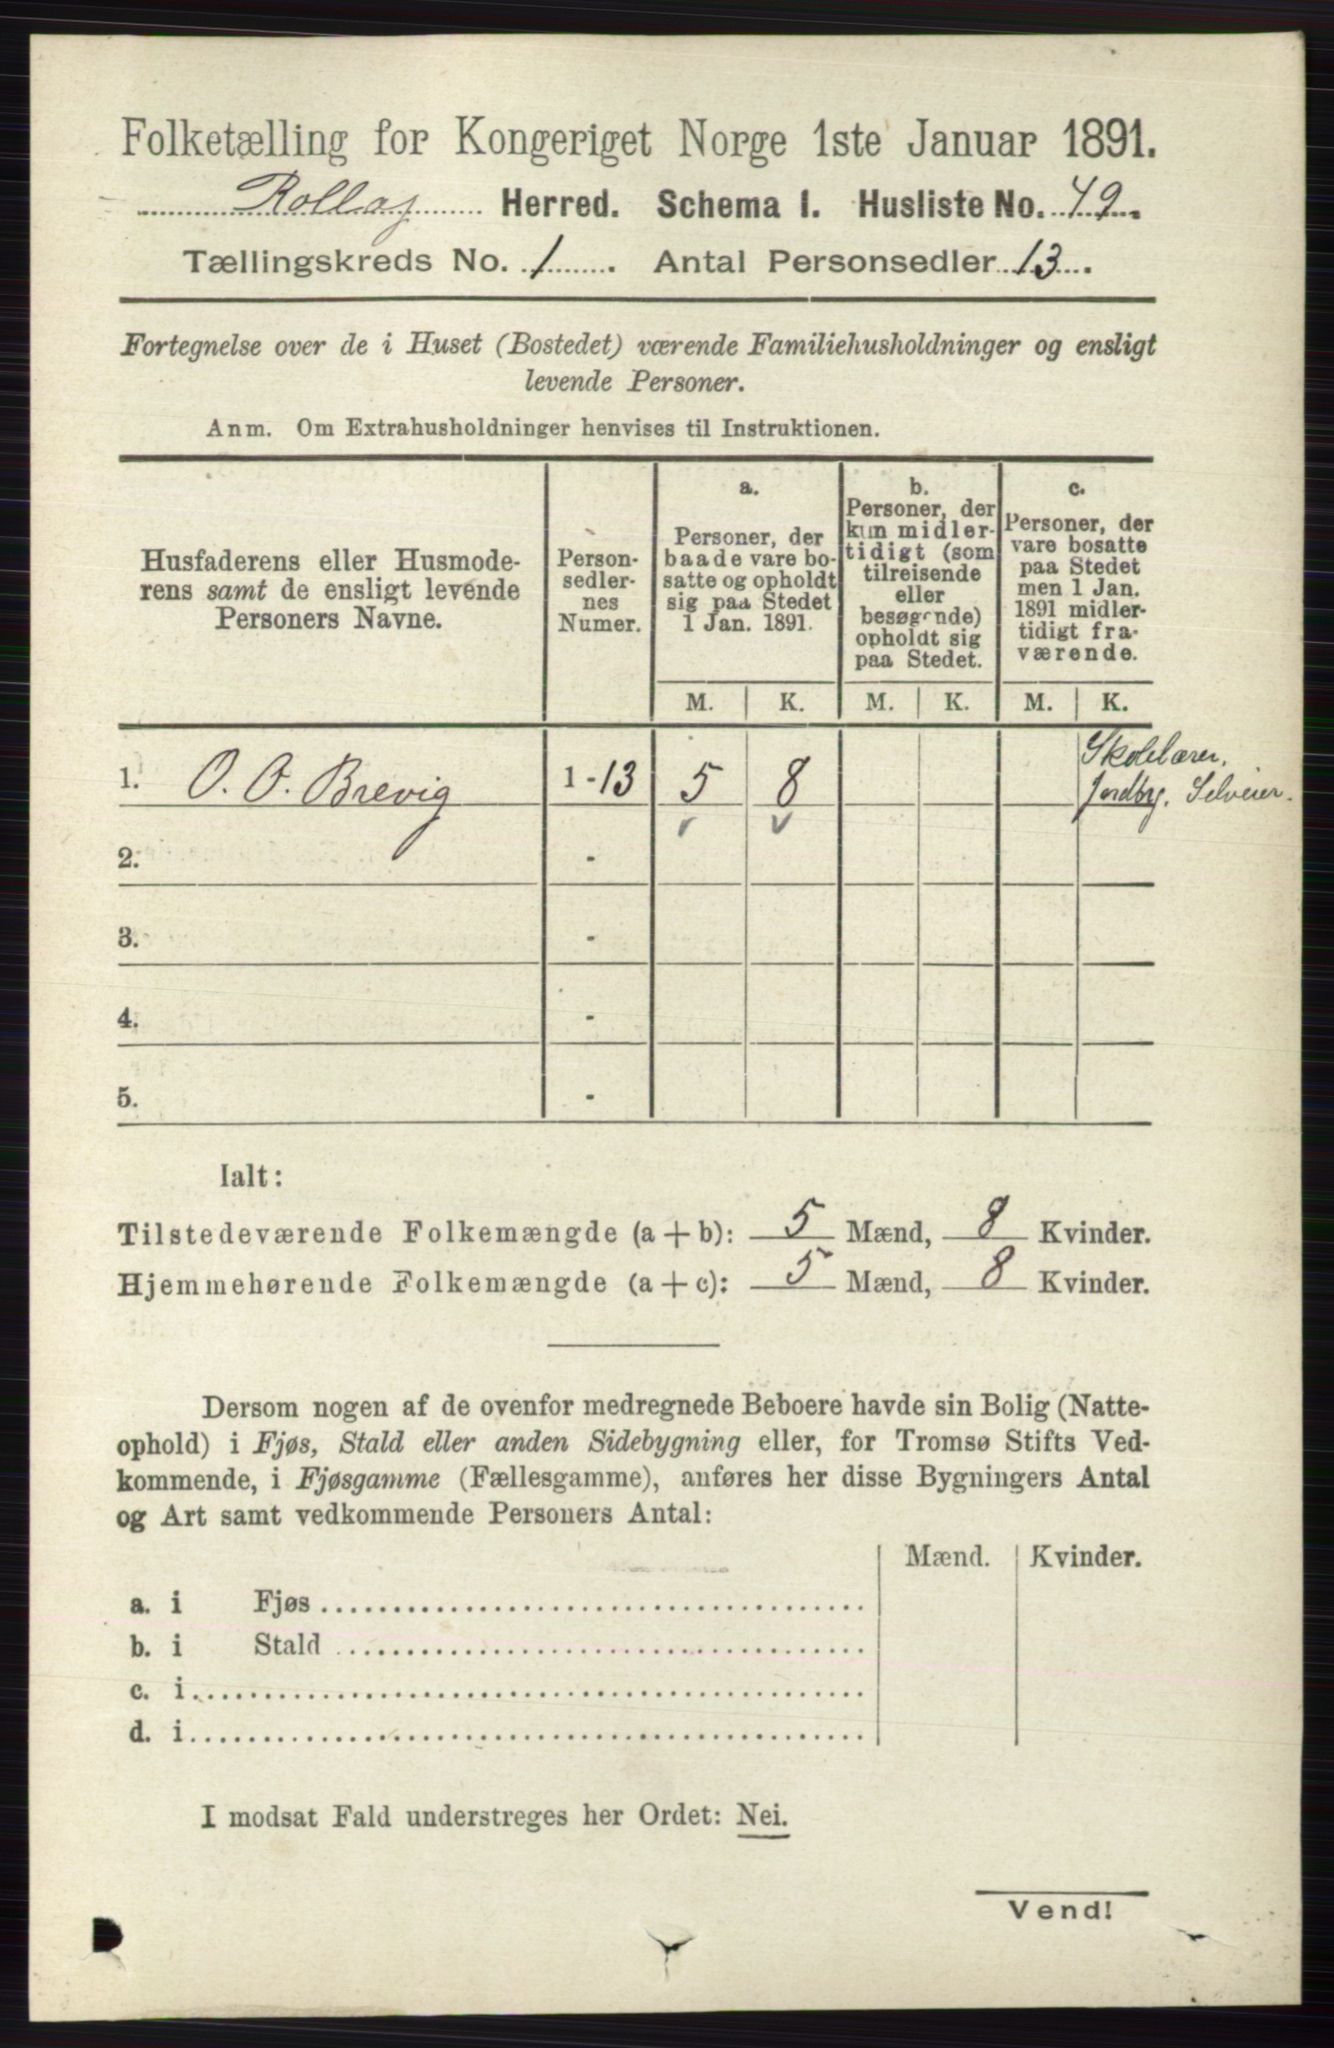 Folketælling for Kongeriget Norge 1ste Januar 1891.
Rollag Herred. Schema 1. Husliste No. 49.
Tællingskreds No. 1. Antal Personsedler 13.
Fortegnelse over de i Huset (Bostedet) værende Familiehusholdninger og ensligt
levende Personer.
Anm. Om Extrahusholdninger henvises til Instruktionen.
Husfaderens eller Husmode-
rens samt de ensligt levende
Personers Navne.
Person-
sedler-
nes
Numer.
a.
Personer, der
baade vare bo-
satte og opholdt
sig paa Stedet
1 Jan. 1891.
b.
Personer, der
kun midler-
tidigt (som
tilreisende
eller
besøgende)
opholdt sig
paa Stedet.
c.
Personer, der
vare bosatte
paa Stedet
men 1 Jan.
1891 midler-
tidigt fra-
værende.
M. K. M. K. M. K.
1. O. O. Brevig 1-13 5 8 Skolelærer.
Jordbrg. Selveier.
2. -
3. -
4. -
5. -
Ialt:
Tilstedeværende Folkemængde (a + b): 5 Mænd, 8 Kvinder.
Hjemmehørende Folkemængde (a + c): 5 Mænd, 8 Kvinder.
Dersom nogen af de ovenfor medregnede Beboere havde sin Bolig (Natte-
ophold) i Fjøs, Stald eller anden Sidebygning eller, for Tromsø Stifts Ved-
kommende, i Fjøsgamme (Fællesgamme), anføres her disse Bygningers Antal
og Art samt vedkommende Personers Antal:
Mænd. Kvinder.
a. i Fjøs
b. i Stald
c. i
d. i
I modsat Fald understreges her Ordet: Nei.
Vend!